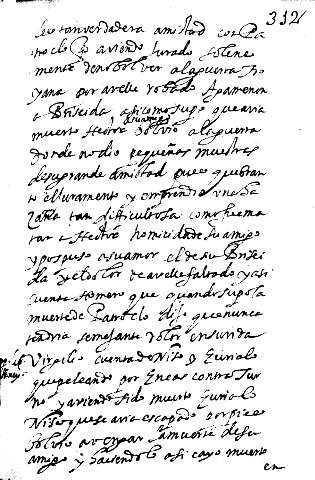 332
leo tan verdadera amistad con Pa
troclo q̃ aviendo jurado solene
mente de no bolver a la guerra tro
yana por averle robado Agamenon
a Briseida, asi como supo que avia
muerto Hector bolvio a la guerra
donde no dio pequeñas muestras
de su grande amistad pues quebran
to el juramento y emprendio una ha
zaña tan dificultosa como fue ma
tar a Hector homicida de su amigo
y pospuso a su amor el de su Brisei
da y el dolor de averle faltado y asi
cuenta Homero que quando supo la
muerte de Patroclo dijo que nunca
tendria semejante dolor en su vida
Virgilio cuenta de Niso y Eurialo
que peleando por Eneas contra Tur
no y aviendo sido muerto Eurialo
Niso que se avia escapado por pies
bolvio a vengar la muerte de su
amigo y haciendolo asi cayo muerto
en